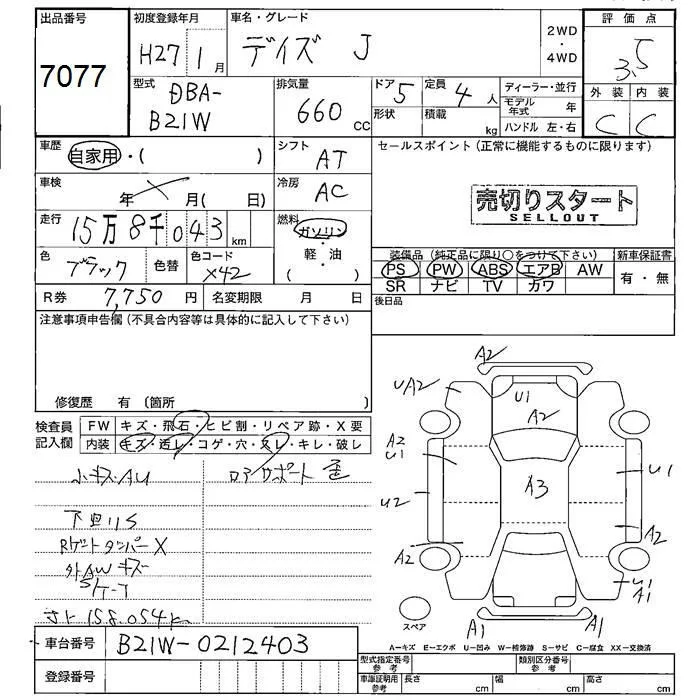 出品番号
7077
初度登録年月
H27 1月
車名・グレード
デイズ J
2WD
・
4WD
評価点
3.5
外装 内装
C C
型式
DBA-
B21W
排気量
660 cc
ドア 5
形状
定員 4人
積載 kg
ディーラー・並行
モデル年式 年
ハンドル 左・右
車歴
自家用・( )
シフト
AT
セールスポイント(正常に機能するものに限ります)
売切りスタート
SELLOUT
車検
年 月( 日)
冷房
AC
走行
15万8千043 km
燃料
ガソリン
・
軽・油
( )
色
ブラック
色替
色コード
X42
装備品(純正品に限り○をつけて下さい)
新車保証書
PS PW ABS エアB AW
SR ナビ TV カワ
有・無
R券 7,750 円
名変期限 月 日
後日品
注意事項申告欄(不具合内容等は具体的に記入して下さい)
修復歴 有(箇所 )
検査員
記入欄
FW キズ・飛石・ヒビ割・リペア跡・X要
内装 キズ・汚レ・コゲ・穴・スレ・キレ・破し
小キズ・AU
下回りS
Rゲートダンパー X
外AWキズ
158,054k
A2
UA2
U1
A2
A2
U1
A3
U1
U2
A2
A2
U1
A1
A1
A1
スペア
A―キズ E―エクボ U―凹み W―補修跡 S―サビ C―腐食 XX―交換済
車台番号 B21W-0212403
登録番号
型式指定番号
参考
類別区分番号
参考
車庫証明用
参考
長さ cm
幅 cm
高さ cm